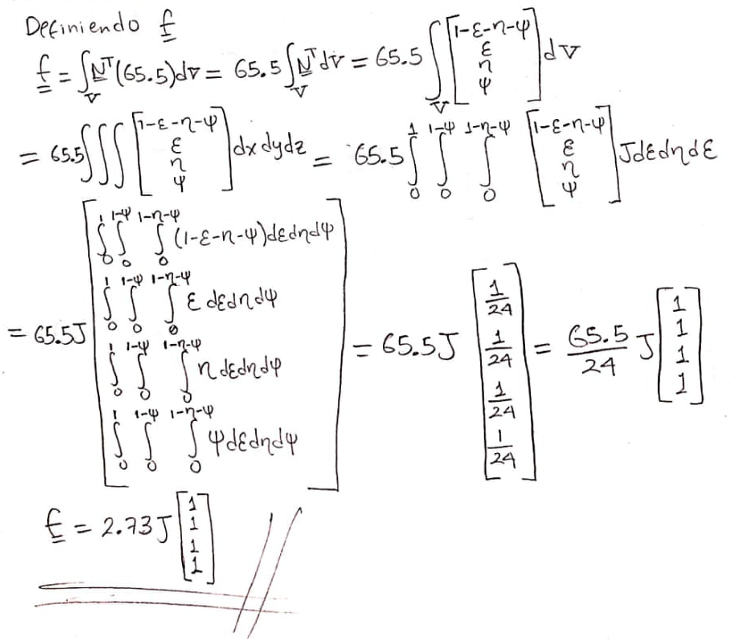 Definiendo f
f = ∫_V N^T (65.5) dV = 65.5 ∫_V N^T dV = 65.5 ∫_V [1-ε-η-ψ; ε; η; ψ] dV
= 65.5 ∫∫∫ [1-ε-η-ψ; ε; η; ψ] dx dy dz = 65.5 ∫_0^1 ∫_0^{1-ψ} ∫_0^{1-η-ψ} [1-ε-η-ψ; ε; η; ψ] J dε dη dε
= 65.5 J [∫_0^1 ∫_0^{1-ψ} ∫_0^{1-η-ψ} (1-ε-η-ψ) dε dη dψ; ∫_0^1 ∫_0^{1-ψ} ∫_0^{1-η-ψ} ε dε dη dψ; ∫_0^1 ∫_0^{1-ψ} ∫_0^{1-η-ψ} η dε dη dψ; ∫_0^1 ∫_0^{1-ψ} ∫_0^{1-η-ψ} ψ dε dη dψ] = 65.5 J [1/24; 1/24; 1/24; 1/24] = 65.5/24 J [1; 1; 1; 1]
f = 2.73 J [1; 1; 1; 1]